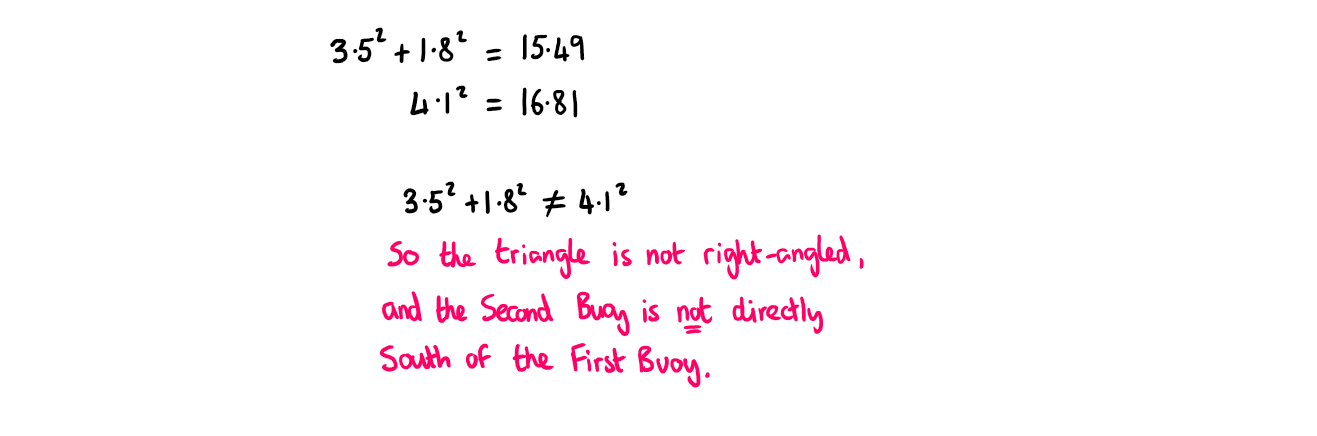 3·5² + 1·8² = 15·49
4·1² = 16·81
3·5² + 1·8² ≠ 4·1²
So the triangle is not right-angled,
and the Second Buoy is not directly
South of the First Buoy.